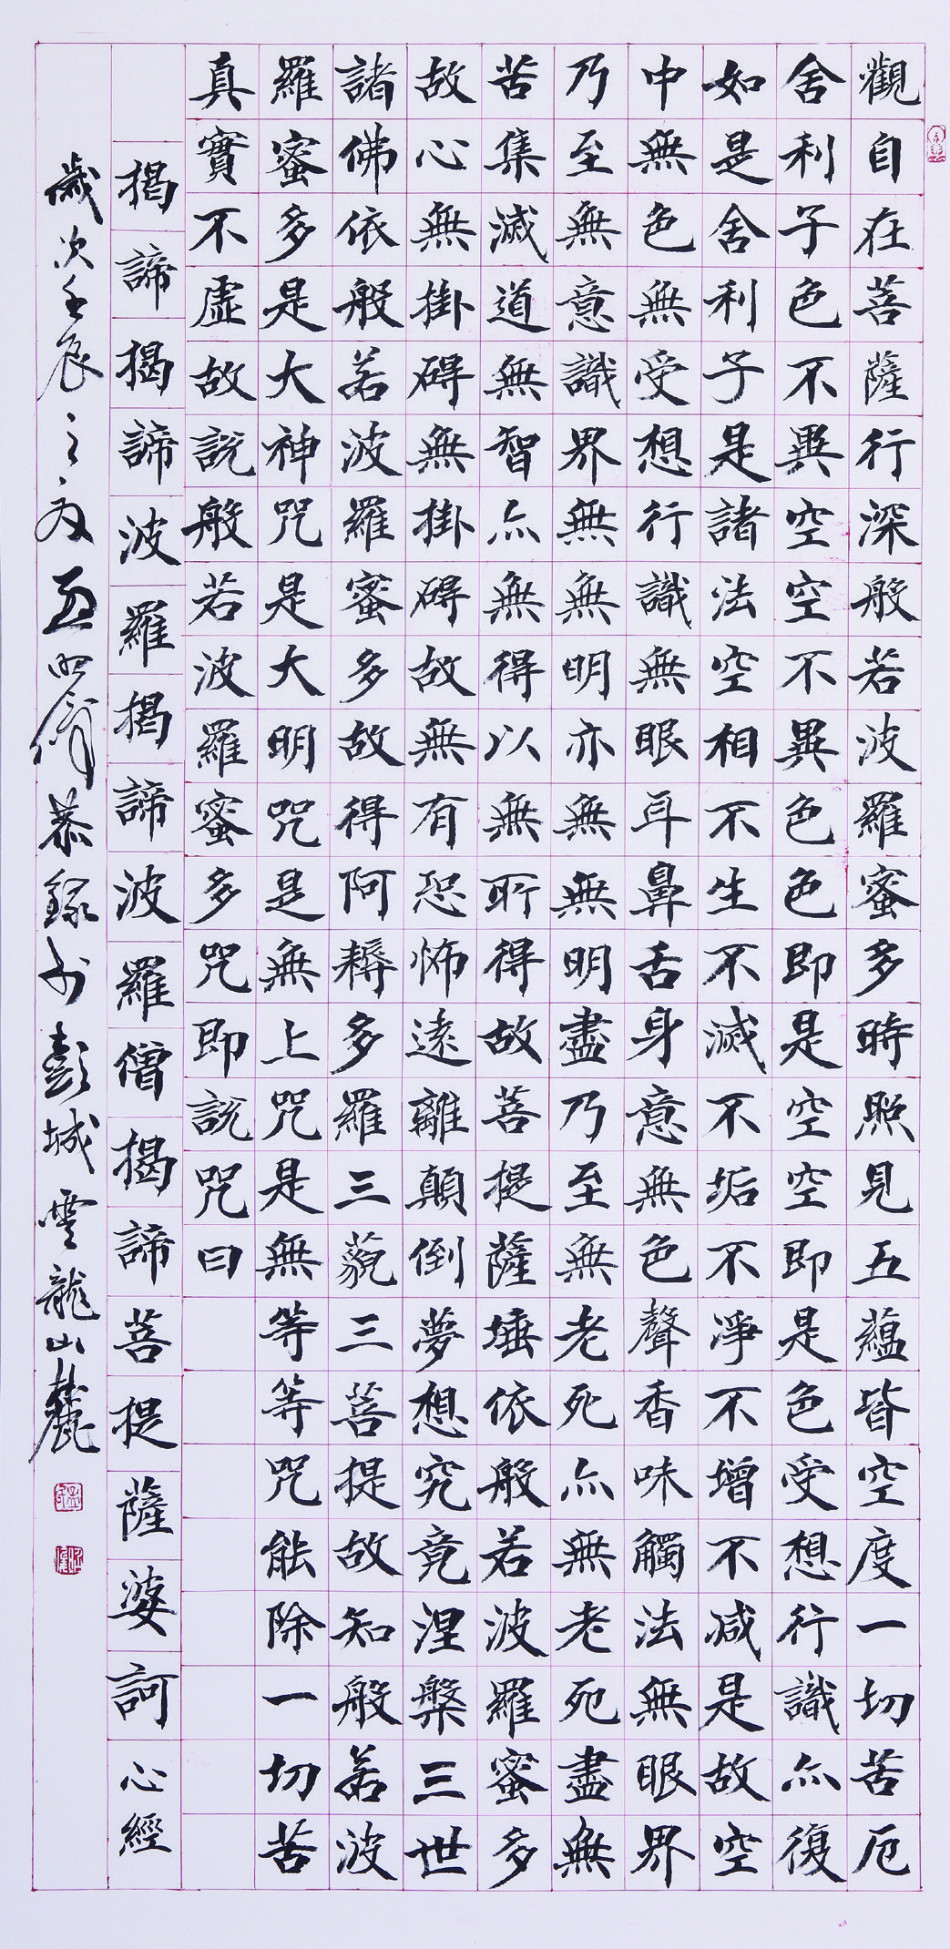 觀自在菩薩行深般若波羅蜜多時照見五蘊皆空度一切苦厄
舍利子色不異空空不異色色即是空空即是色受想行識亦復
如是舍利子是諸法空相不生不滅不垢不淨不增不減是故空
中無色無受想行識無眼耳鼻舌身意無色聲香味觸法無眼界
乃至無意識界無無明亦無無明盡乃至無老死亦無老死盡無
苦集滅道無智亦無得以無所得故菩提薩埵依般若波羅蜜多
故心無掛碍無掛碍故無有恐怖遠離顛倒夢想究竟涅槃三世
諸佛依般若波羅蜜多故得阿耨多羅三藐三菩提故知般若波
羅蜜多是大神咒是大明咒是無上咒是無等等咒能除一切苦
真實不虛故說般若波羅蜜多咒即說咒曰
揭諦揭諦波羅揭諦波羅僧揭諦菩提薩婆訶心經
歲次壬辰之夏恭錄於彭城雲龍山麓